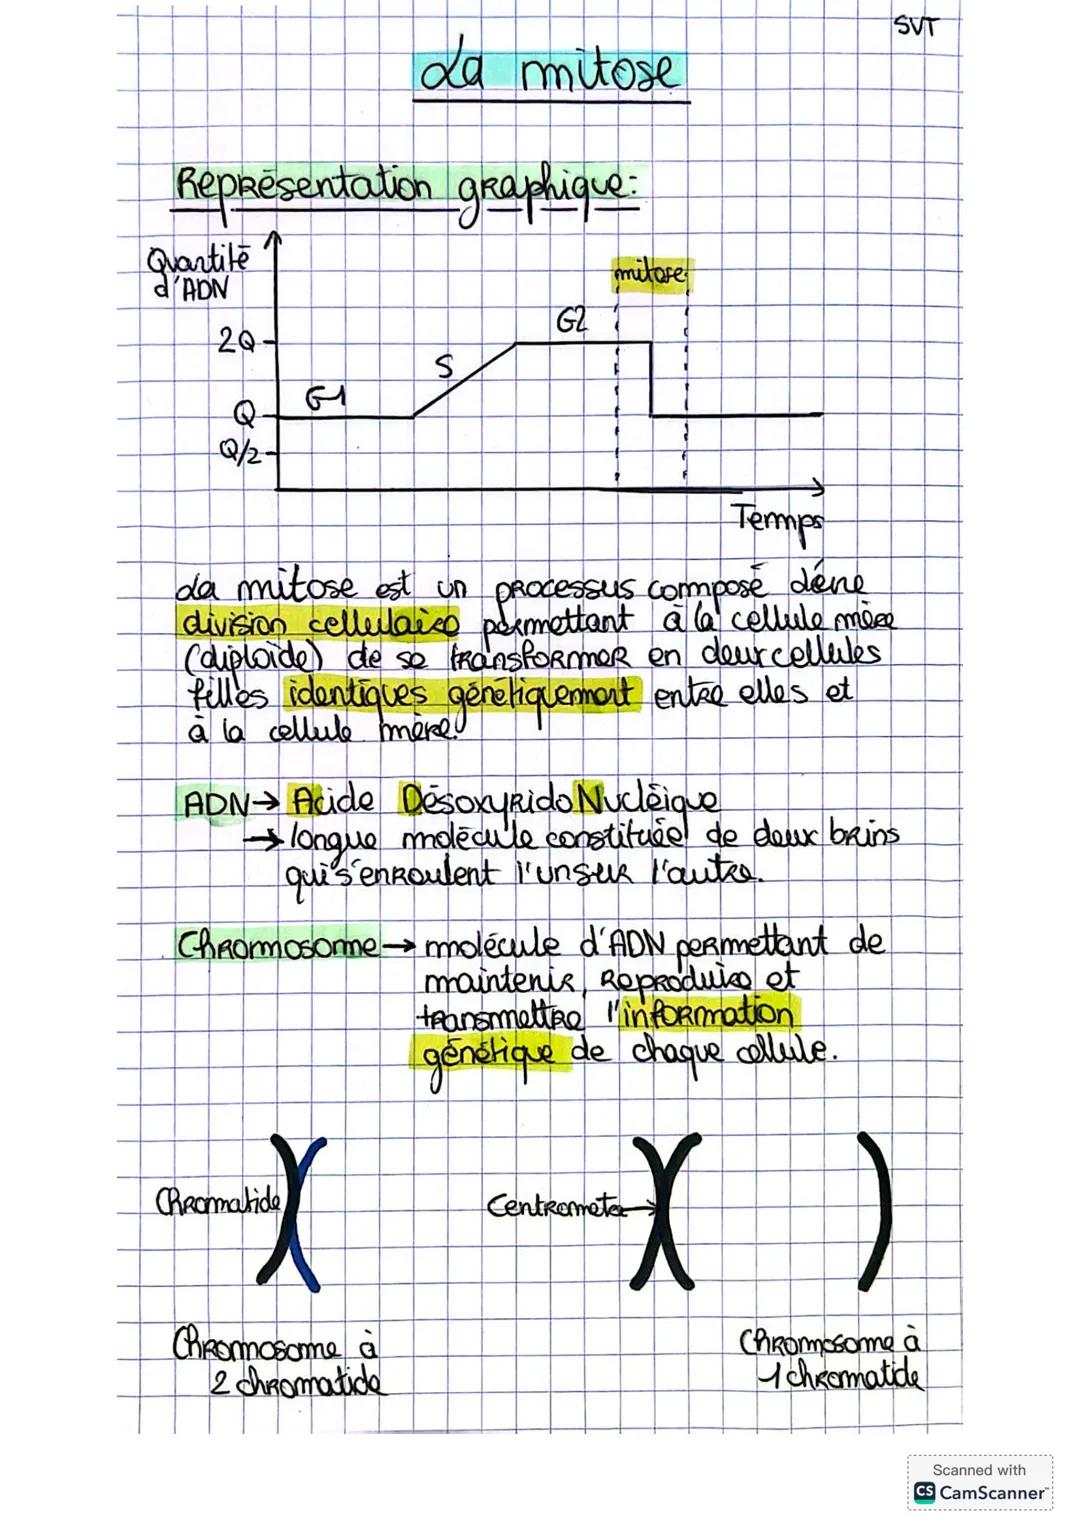 SVT
La mitose
Représentation graphique:
Quantité
d'ADN
mitose
G2
2Q
S
G1
Q
Q/2
Temps
La mitose est un processus composé d'éne
division cellulaire permettant à la cellule mère
(diploïde) de se transformer en deux cellules
filles identiques génétiquement entre elles et
à la cellule mère.
ADN → Acide DésoxyridoNucléique
→ longue molécule constituée de deux brins
qui s'enroulent l'un sur l'autre.
Chromosome → molécule d'ADN permettant de
maintenir, Reproduire et
transmettre l'information
génétique de chaque cellule.
Chromatide
Centrometre
Chromosome à
2 chromatide
Chromosome à
1 chromatide
Scanned with
CS CamScanner